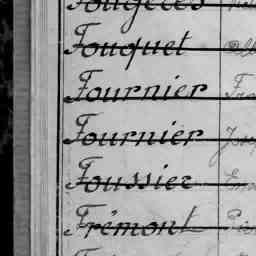 Fougères
Fouquet
Fournier
Fournier
Foussier
Frémont